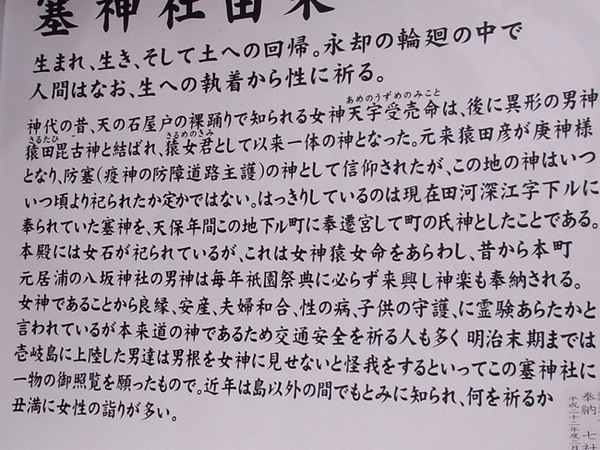 塞神社由来
生まれ、生き、そして土への回帰。永却の輪廻の中で
人間はなお、生への執着から性に祈る。
神代の昔、天の石屋戸の裸踊りで知られる女神天宇受売命は、後に異形の男神
猿田毘古神と結ばれ、猿女君として以来一体の神となった。元来猿田彦が庚神様
となり、防塞(疫神の防障道路主護)の神として信仰されたが、この地の神はいつ
いつ頃より祀られたか定かではない。はっきりしているのは現在田河深江字下ルに
奉られていた塞神を、天保年間この地下ル町に奉遷宮して町の氏神としたことである。
本殿には女石が祀られているが、これは女神猿女命をあらわし、昔から本町
元居浦の八坂神社の男神は毎年祇園祭典に必らず来興し神楽も奉納される。
女神であることから良縁、安産、夫婦和合、性の病、子供の守護、に霊験あらたかと
言われているが本来道の神であるため交通安全を祈る人も多く 明治末期までは
壱岐島に上陸した男達は男根を女神に見せないと怪我をするといってこの塞神社に
一物の御照覧を願ったもので。近年は島以外の間でもとみに知られ、何を祈るか
丑満に女性の詣りが多い。
あめのうずめのみこと
さるたひ
さるめのきみ
奉納 七社
平成二十二年度三月